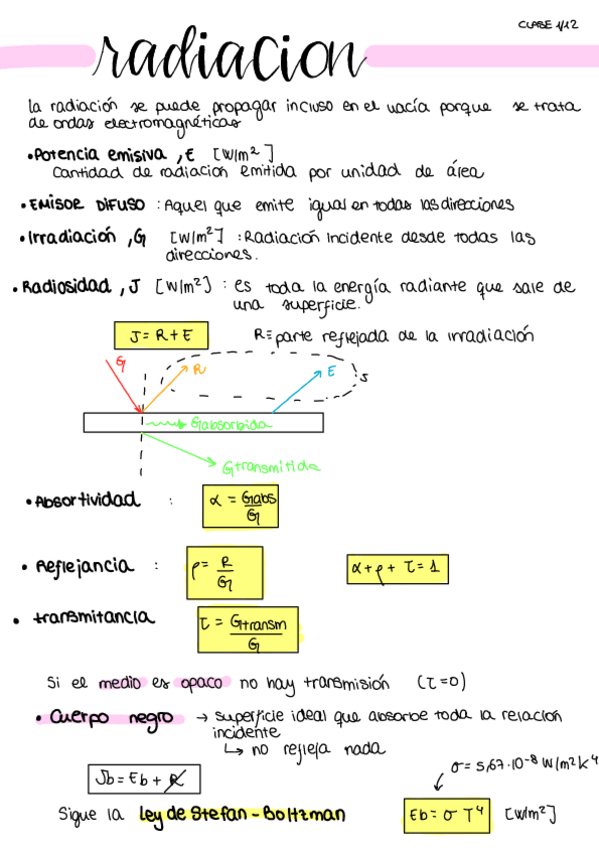 CLASE 1/12
radiacion
la radiación se puede propagar incluso en el vacía porque se trata
de ondas electromagnéticas
• Potencia emisiva, E [W/m²]
Cantidad de radiacion emitida por unidad de área
• EMISOR DIFUSO : Aquel que emite igual en todas las direcciones
• Irradiación, G [W/m²] : Radiación Incidente desde todas las
direcciones.
• Radiosidad, J [W/m²] : es toda la energía radiante que sale de
una superficie.
J = R + E R ≡ parte reflejada de la irradiación
G R E J
Gabsorbida
Gtransmitida
• Absortividad : α = Gabs / G
• Reflejancia : ρ = R / G α + ρ + τ = 1
• transmitancia τ = Gtransm / G
Si el medio es opaco no hay transmisión (τ = 0)
• Cuerpo negro → superficie ideal que absorbe toda la relacion
incidente
↳ no refleja nada
Jb = Eb + R σ = 5,67·10⁻⁸ W/m²K⁴
Sigue la ley de Stefan-Boltzman Eb = σ T⁴ [W/m²]